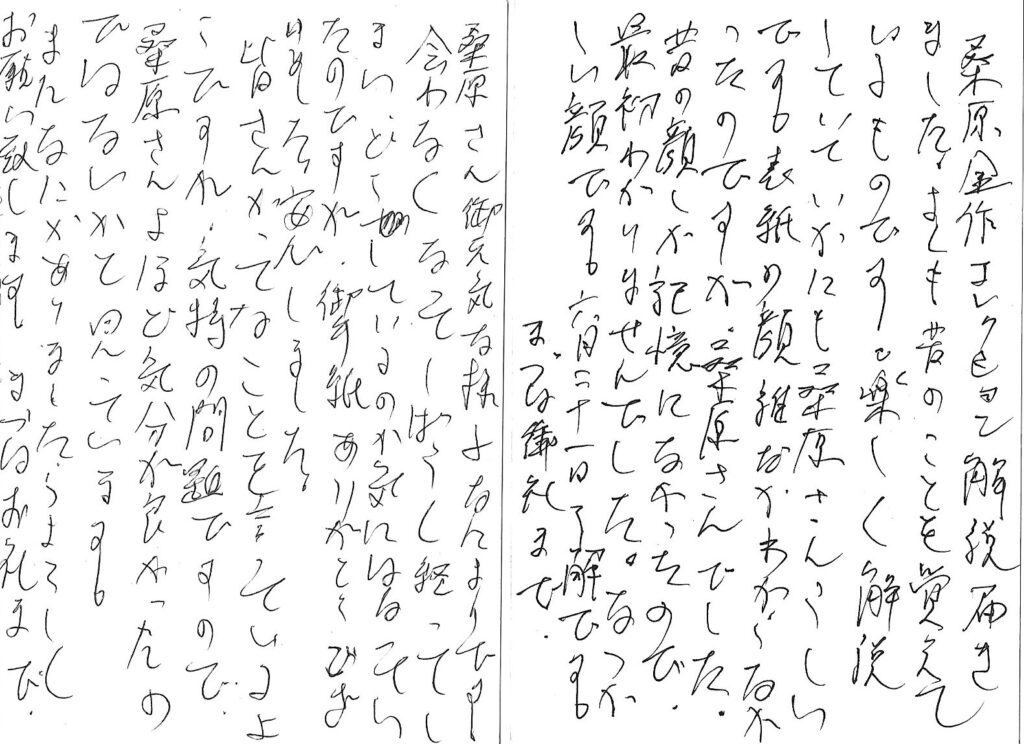 桑原金作コレクション解説届き
ました。よくも昔のことを覚えて
いるものです。楽しく解説
していていかにも桑原さんらしい
です。表紙の顔誰なかわからなか
ったのですが、桑原さんでした。
昔の顔しか記憶になかったので
最初わかりませんでした。なつか
しい顔です。六月二十一日了解です。
まづは御礼まで。
桑原さん御元気な様よなによりです
会わなくなってしばらく経ってし
まい、どうしているのか気にはなってい
たのですが、御手紙ありがとうござ
いました。安心しました。
皆さんがってなことを言っているよ
うですが、気持の問題ですので、
桑原さんよほど気分が良かったの
ではないかと思っています。
またなにかありましたらよろしく
お願い致します。まづはお礼まで。